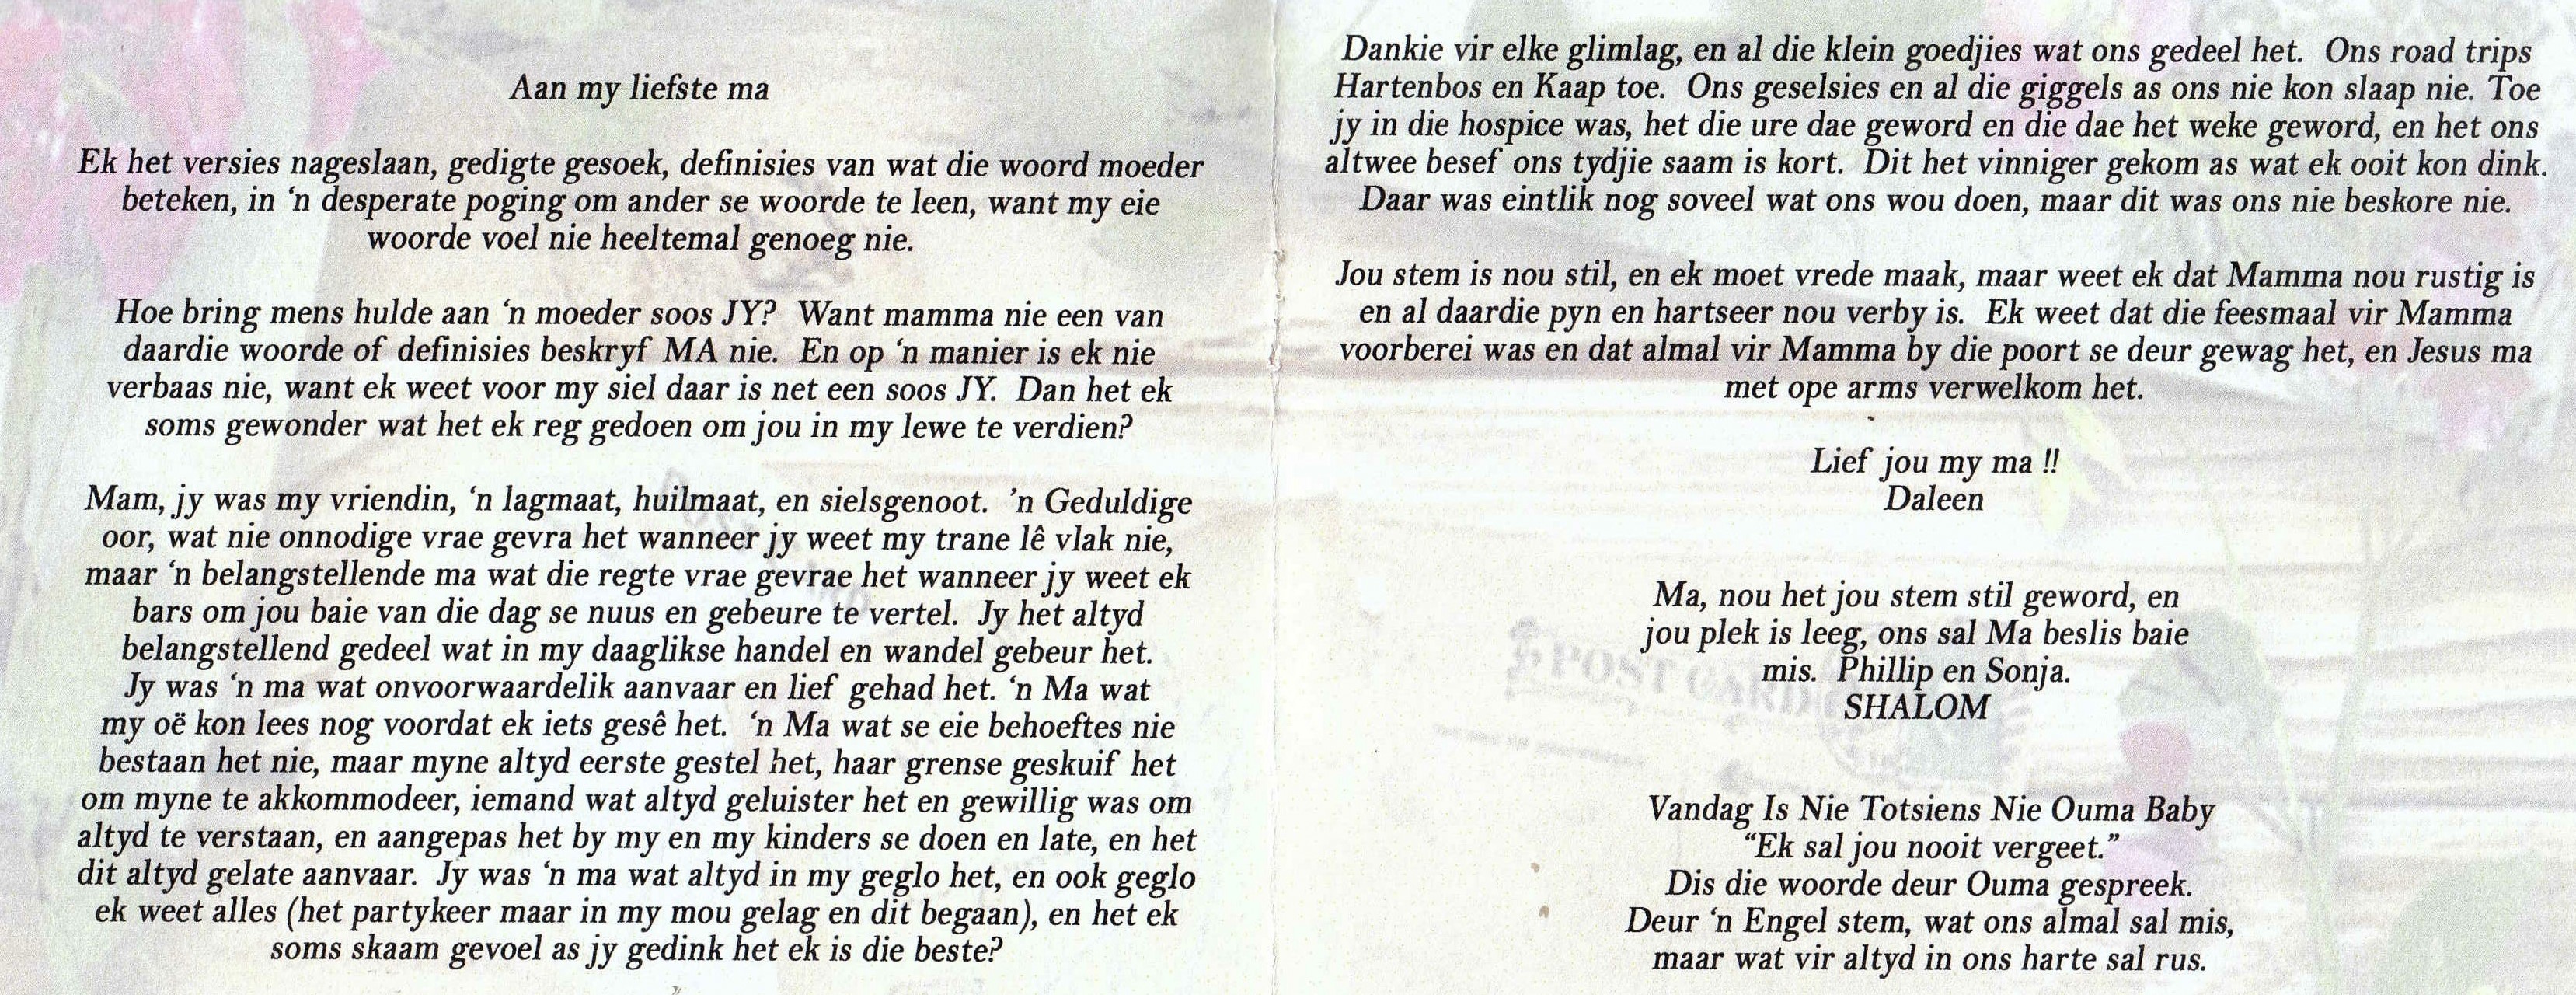 Aan my liefste ma
Ek het versies nageslaan, gedigte gesoek, definisies van wat die woord moeder
beteken, in ‘n desperate poging om ander se woorde te leen, want my eie
woorde voel nie heeltemal genoeg nie.
Hoe bring mens hulde aan ‘n moeder soos JY?  Want mamma nie een van
daardie woorde of definisies beskryf MA nie.  En op ‘n manier is ek nie
verbaas nie, want ek weet voor my siel daar is net een soos JY.  Dan het ek
soms gewonder wat het ek reg gedoen om jou in my lewe te verdien?
Mam, jy was my vriendin, ‘n lagmaat, huilmaat, en sielsgenoot.  ’n Geduldige
oor, wat nie onnodige vrae gevra het wanneer jy weet my trane lê vlak nie,
maar ‘n belangstellende ma wat die regte vrae gevrae het wanneer jy weet ek
bars om jou baie van die dag se nuus en gebeure te vertel.  Jy het altyd
belangstellend gedeel wat in my daaglikse handel en wandel gebeur het.
Jy was ‘n ma wat onvoorwaardelik aanvaar en lief gehad het. ‘n Ma wat
my oë kon lees nog voordat ek iets gesê het.  ‘n Ma wat se eie behoeftes nie
bestaan het nie, maar myne altyd eerste gestel het, haar grense geskuif het
om myne te akkommodeer, iemand wat altyd geluister het en gewillig was om
altyd te verstaan, en aangepas het by my en my kinders se doen en late, en het
dit altyd gelate aanvaar.  Jy was ‘n ma wat altyd in my geglo het, en ook geglo
ek weet alles (het partykeer maar in my mou gelag en dit begaan), en het ek
soms skaam gevoel as jy gedink het ek is die beste?
Dankie vir elke glimlag, en al die klein goedjies wat ons gedeel het.  Ons road trips
Hartenbos en Kaap toe.  Ons geselsies en al die giggels as ons nie kon slaap nie. Toe
jy in die hospice was, het die ure dae geword en die dae het weke geword, en het ons
altwee besef ons tydjie saam is kort.  Dit het vinniger gekom as wat ek ooit kon dink.
Daar was eintlik nog soveel wat ons wou doen, maar dit was ons nie beskore nie.
Jou stem is nou stil, en ek moet vrede maak, maar weet ek dat Mamma nou rustig is
en al daardie pyn en hartseer nou verby is.  Ek weet dat die feesmaal vir Mamma
voorberei was en dat almal vir Mamma by die poort se deur gewag het, en Jesus ma
met ope arms verwelkom het.
Lief jou my ma !!
Daleen
Ma, nou het jou stem stil geword, en
jou plek is leeg, ons sal Ma beslis baie
mis.  Phillip en Sonja.
SHALOM
POST CARD
Vandag Is Nie Totsiens Nie Ouma Baby
“Ek sal jou nooit vergeet.”
Dis die woorde deur Ouma gespreek.
Deur ‘n Engel stem, wat ons almal sal mis,
maar wat vir altyd in ons harte sal rus.